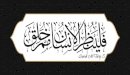 فَلْيَنظُرِ الْإِنسَانُ مِمَّ خُلِقَ